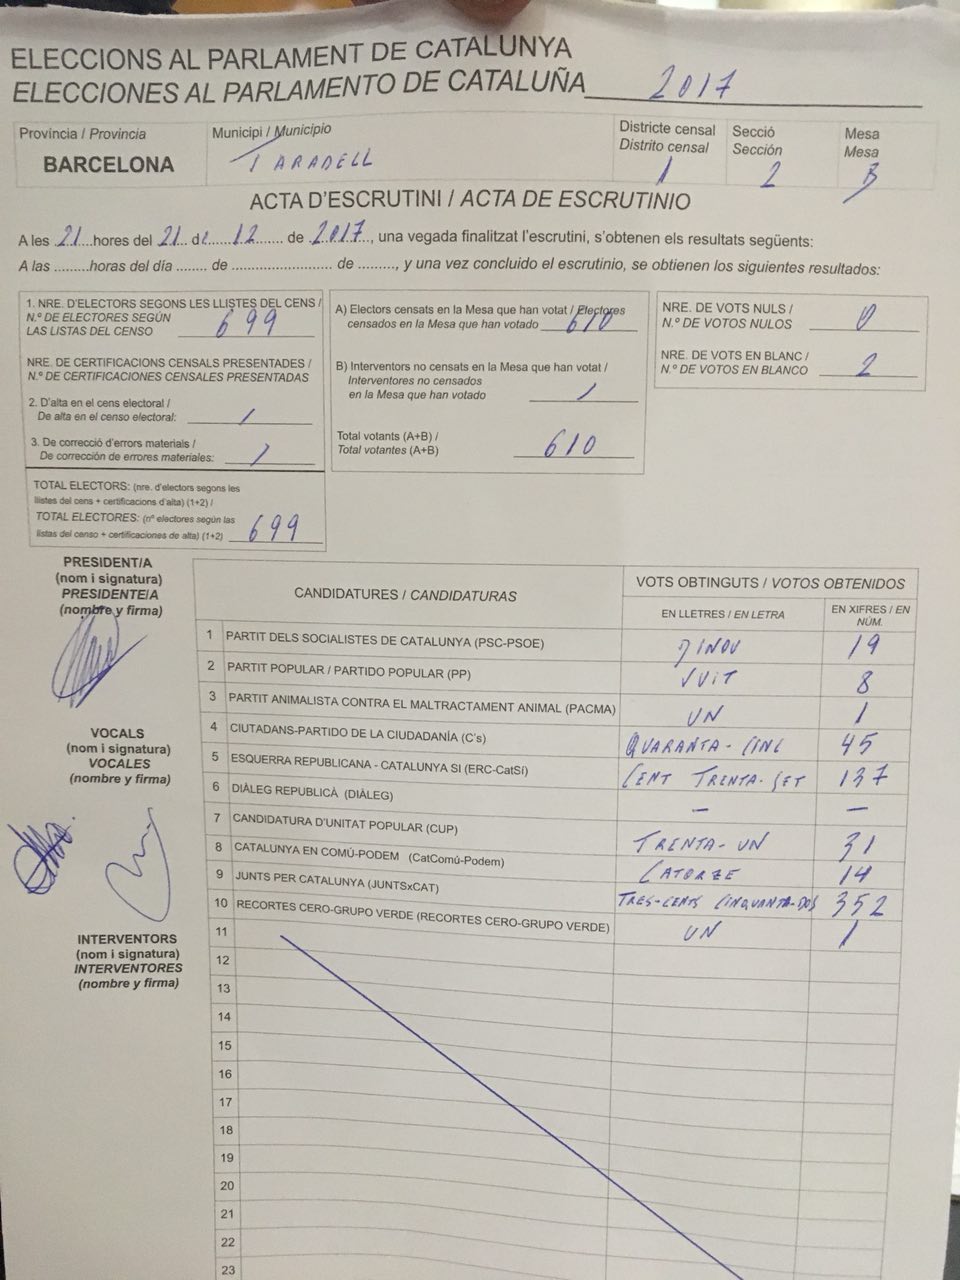 ELECCIONS AL PARLAMENT DE CATALUNYA
ELECCIONES AL PARLAMENTO DE CATALUÑA 2017
Provincia / Provincia
BARCELONA
Municipi / Municipio
TARADELL
Districte censal
Distrito censal
1
Secció
Sección
2
Mesa
Mesa
B
ACTA D'ESCRUTINI / ACTA DE ESCRUTINIO
A les 21 hores del 21 de 12 de 2017, una vegada finalitzat l'escrutini, s'obtenen els resultats següents:
A las .........horas del día ........ de ......................... de ........., y una vez concluido el escrutinio, se obtienen los siguientes resultados:
1. NRE. D'ELECTORS SEGONS LES LLISTES DEL CENS /
N.º DE ELECTORES SEGÚN
LAS LISTAS DEL CENSO 699
NRE. DE CERTIFICACIONS CENSALS PRESENTADES /
N.º DE CERTIFICACIONES CENSALES PRESENTADAS
2. D'alta en el cens electoral /
De alta en el censo electoral: /
3. De correcció d'errors materials /
De corrección de errores materiales: /
TOTAL ELECTORS: (nre. d'electors segons les
llistes del cens + certificacions d'alta) (1+2) /
TOTAL ELECTORES: (nº electores según las
listas del censo + certificaciones de alta) (1+2) 699
A) Electors censats en la Mesa que han votat / Electores
censados en la Mesa que han votado 610
B) Interventors no censats en la Mesa que han votat /
Interventores no censados
en la Mesa que han votado /
Total votants (A+B) /
Total votantes (A+B) 610
NRE. DE VOTS NULS /
N.º DE VOTOS NULOS 0
NRE. DE VOTS EN BLANC /
N.º DE VOTOS EN BLANCO 2
PRESIDENT/A
(nom i signatura)
PRESIDENTE/A
(nombre y firma)
VOCALS
(nom i signatura)
VOCALES
(nombre y firma)
INTERVENTORS
(nom i signatura)
INTERVENTORES
(nombre y firma)
CANDIDATURES / CANDIDATURAS
VOTS OBTINGUTS / VOTOS OBTENIDOS
EN LLETRES / EN LETRA
EN XIFRES / EN NÚM.
1 PARTIT DELS SOCIALISTES DE CATALUNYA (PSC-PSOE) DINOU 19
2 PARTIT POPULAR / PARTIDO POPULAR (PP) VUIT 8
3 PARTIT ANIMALISTA CONTRA EL MALTRACTAMENT ANIMAL (PACMA) UN 1
4 CIUTADANS-PARTIDO DE LA CIUDADANÍA (C's) QUARANTA-CINC 45
5 ESQUERRA REPUBLICANA - CATALUNYA SI (ERC-CatSí) CENT TRENTA-SET 137
6 DIÀLEG REPUBLICÀ (DIÀLEG) — —
7 CANDIDATURA D'UNITAT POPULAR (CUP) TRENTA-UN 31
8 CATALUNYA EN COMÚ-PODEM (CatComú-Podem) CATORZE 14
9 JUNTS PER CATALUNYA (JUNTSxCAT) TRES-CENTS CINQUANTA-DOS 352
10 RECORTES CERO-GRUPO VERDE (RECORTES CERO-GRUPO VERDE) UN 1
11
12
13
14
15
16
17
18
19
20
21
22
23